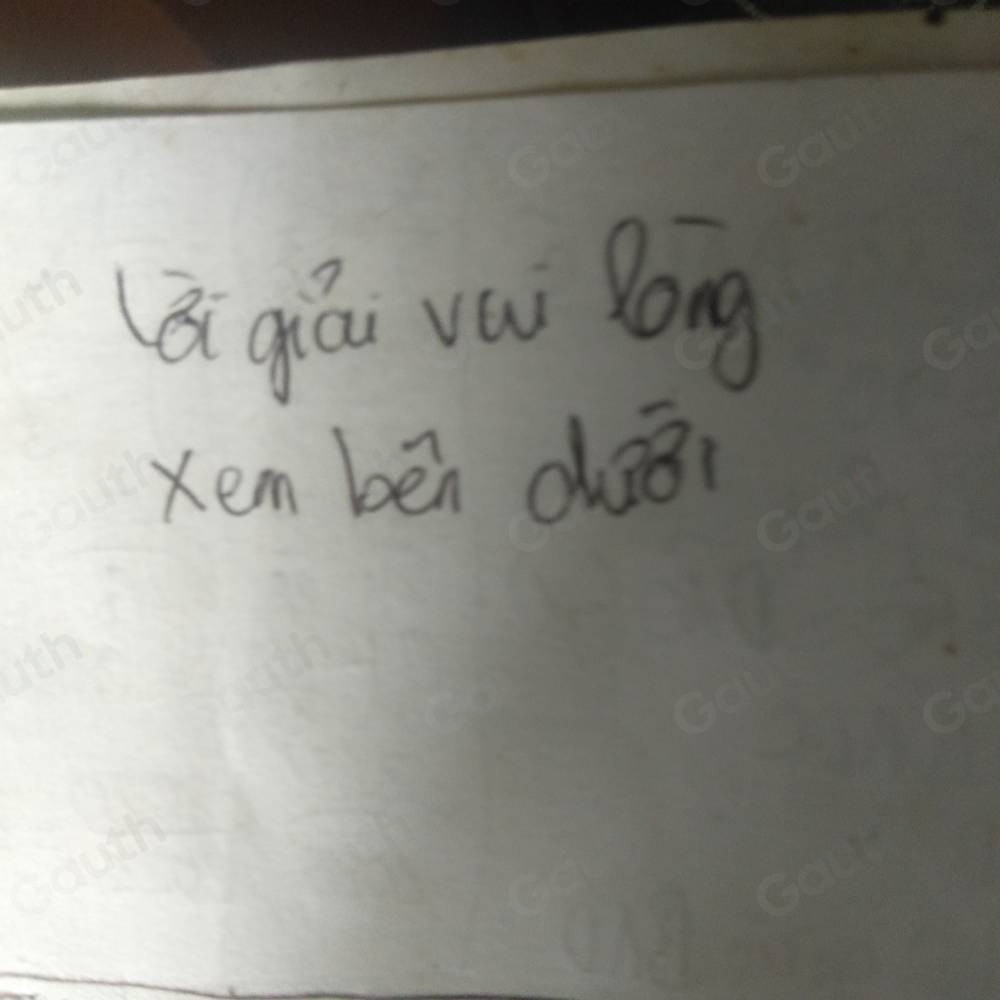 Lời giải vui lòng
xem bên dưới